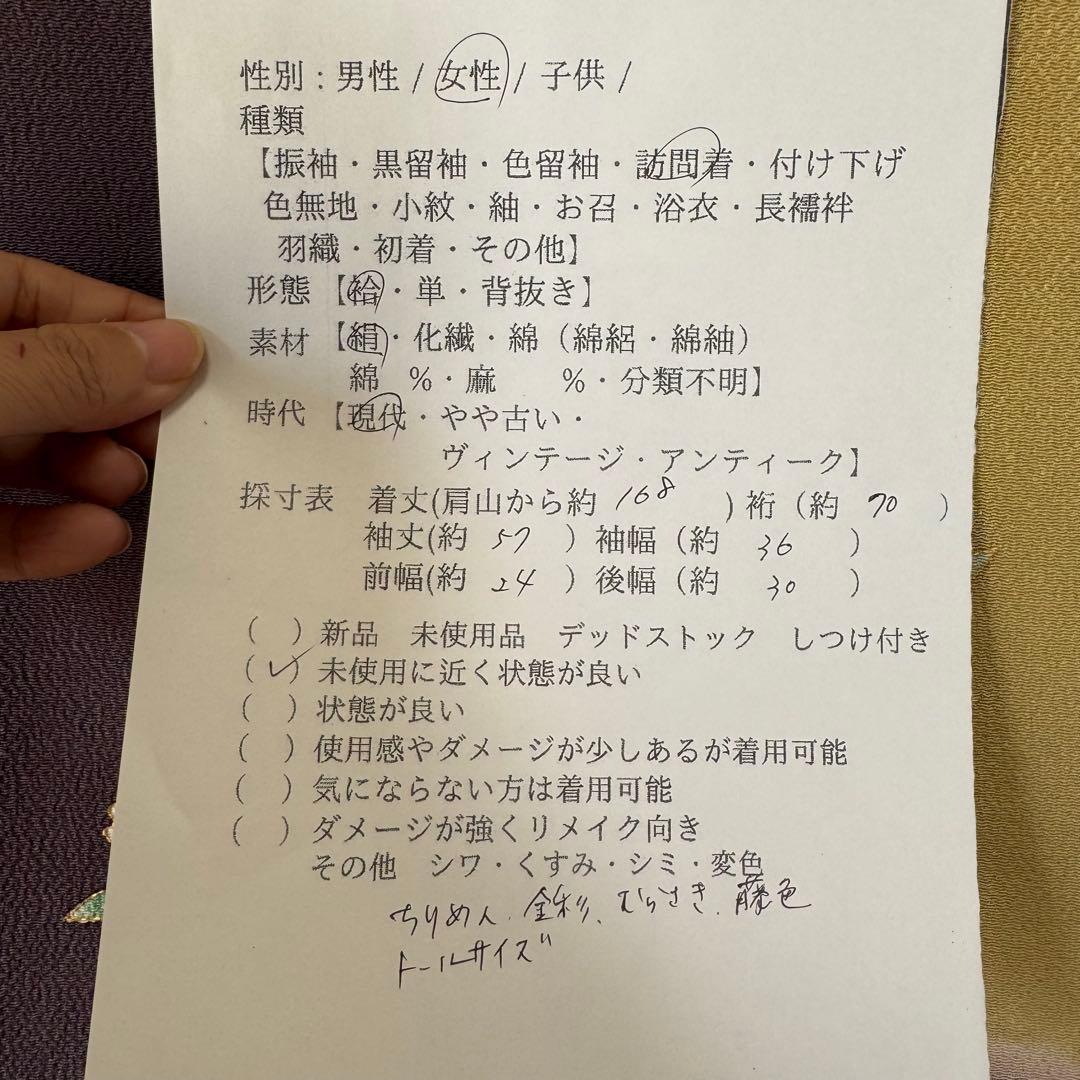 性別：男性 / 女性 / 子供 /
種類
【振袖・黒留袖・色留袖・訪問着・付け下げ
色無地・小紋・紬・お召・浴衣・長襦袢
羽織・初着・その他】
形態【袷・単・背抜き】
素材【絹・化繊・綿（綿絽・綿紬）
綿　％・麻　　％・分類不明】
時代【現代・やや古い・
ヴィンテージ・アンティーク】
採寸表　着丈(肩山から約 168 ) 裄（約 70 ）
袖丈(約 57 ）袖幅（約 36 ）
前幅(約 24 ）後幅（約 30 ）
（　）新品　未使用品　デッドストック　しつけ付き
（✓）未使用に近く状態が良い
（　）状態が良い
（　）使用感やダメージが少しあるが着用可能
（　）気にならない方は着用可能
（　）ダメージが強くリメイク向き
その他　シワ・くすみ・シミ・変色
ちりめん、金彩、むらさき、藤色
トールサイズ